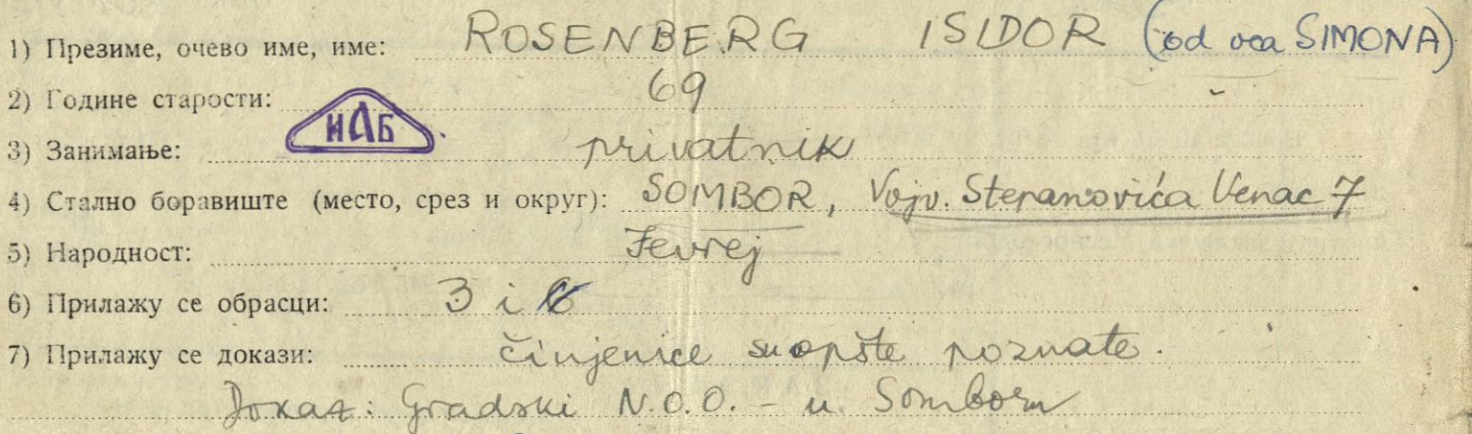 1) Презиме, очево име, име: ROSENBERG ISIDOR (od oca SIMONA)
2) Године старости: 69
НАБ
3) Занимање: privatnik
4) Стално боравиште (место, срез и округ): SOMBOR, Vojv. Stepanovića Venac 7
5) Народност: Jevrej
6) Прилажу се обрасци: 3 i
7) Прилажу се докази: činjenice su opšte poznate.
Dokaz: Gradski N.O.O. - u Somboru